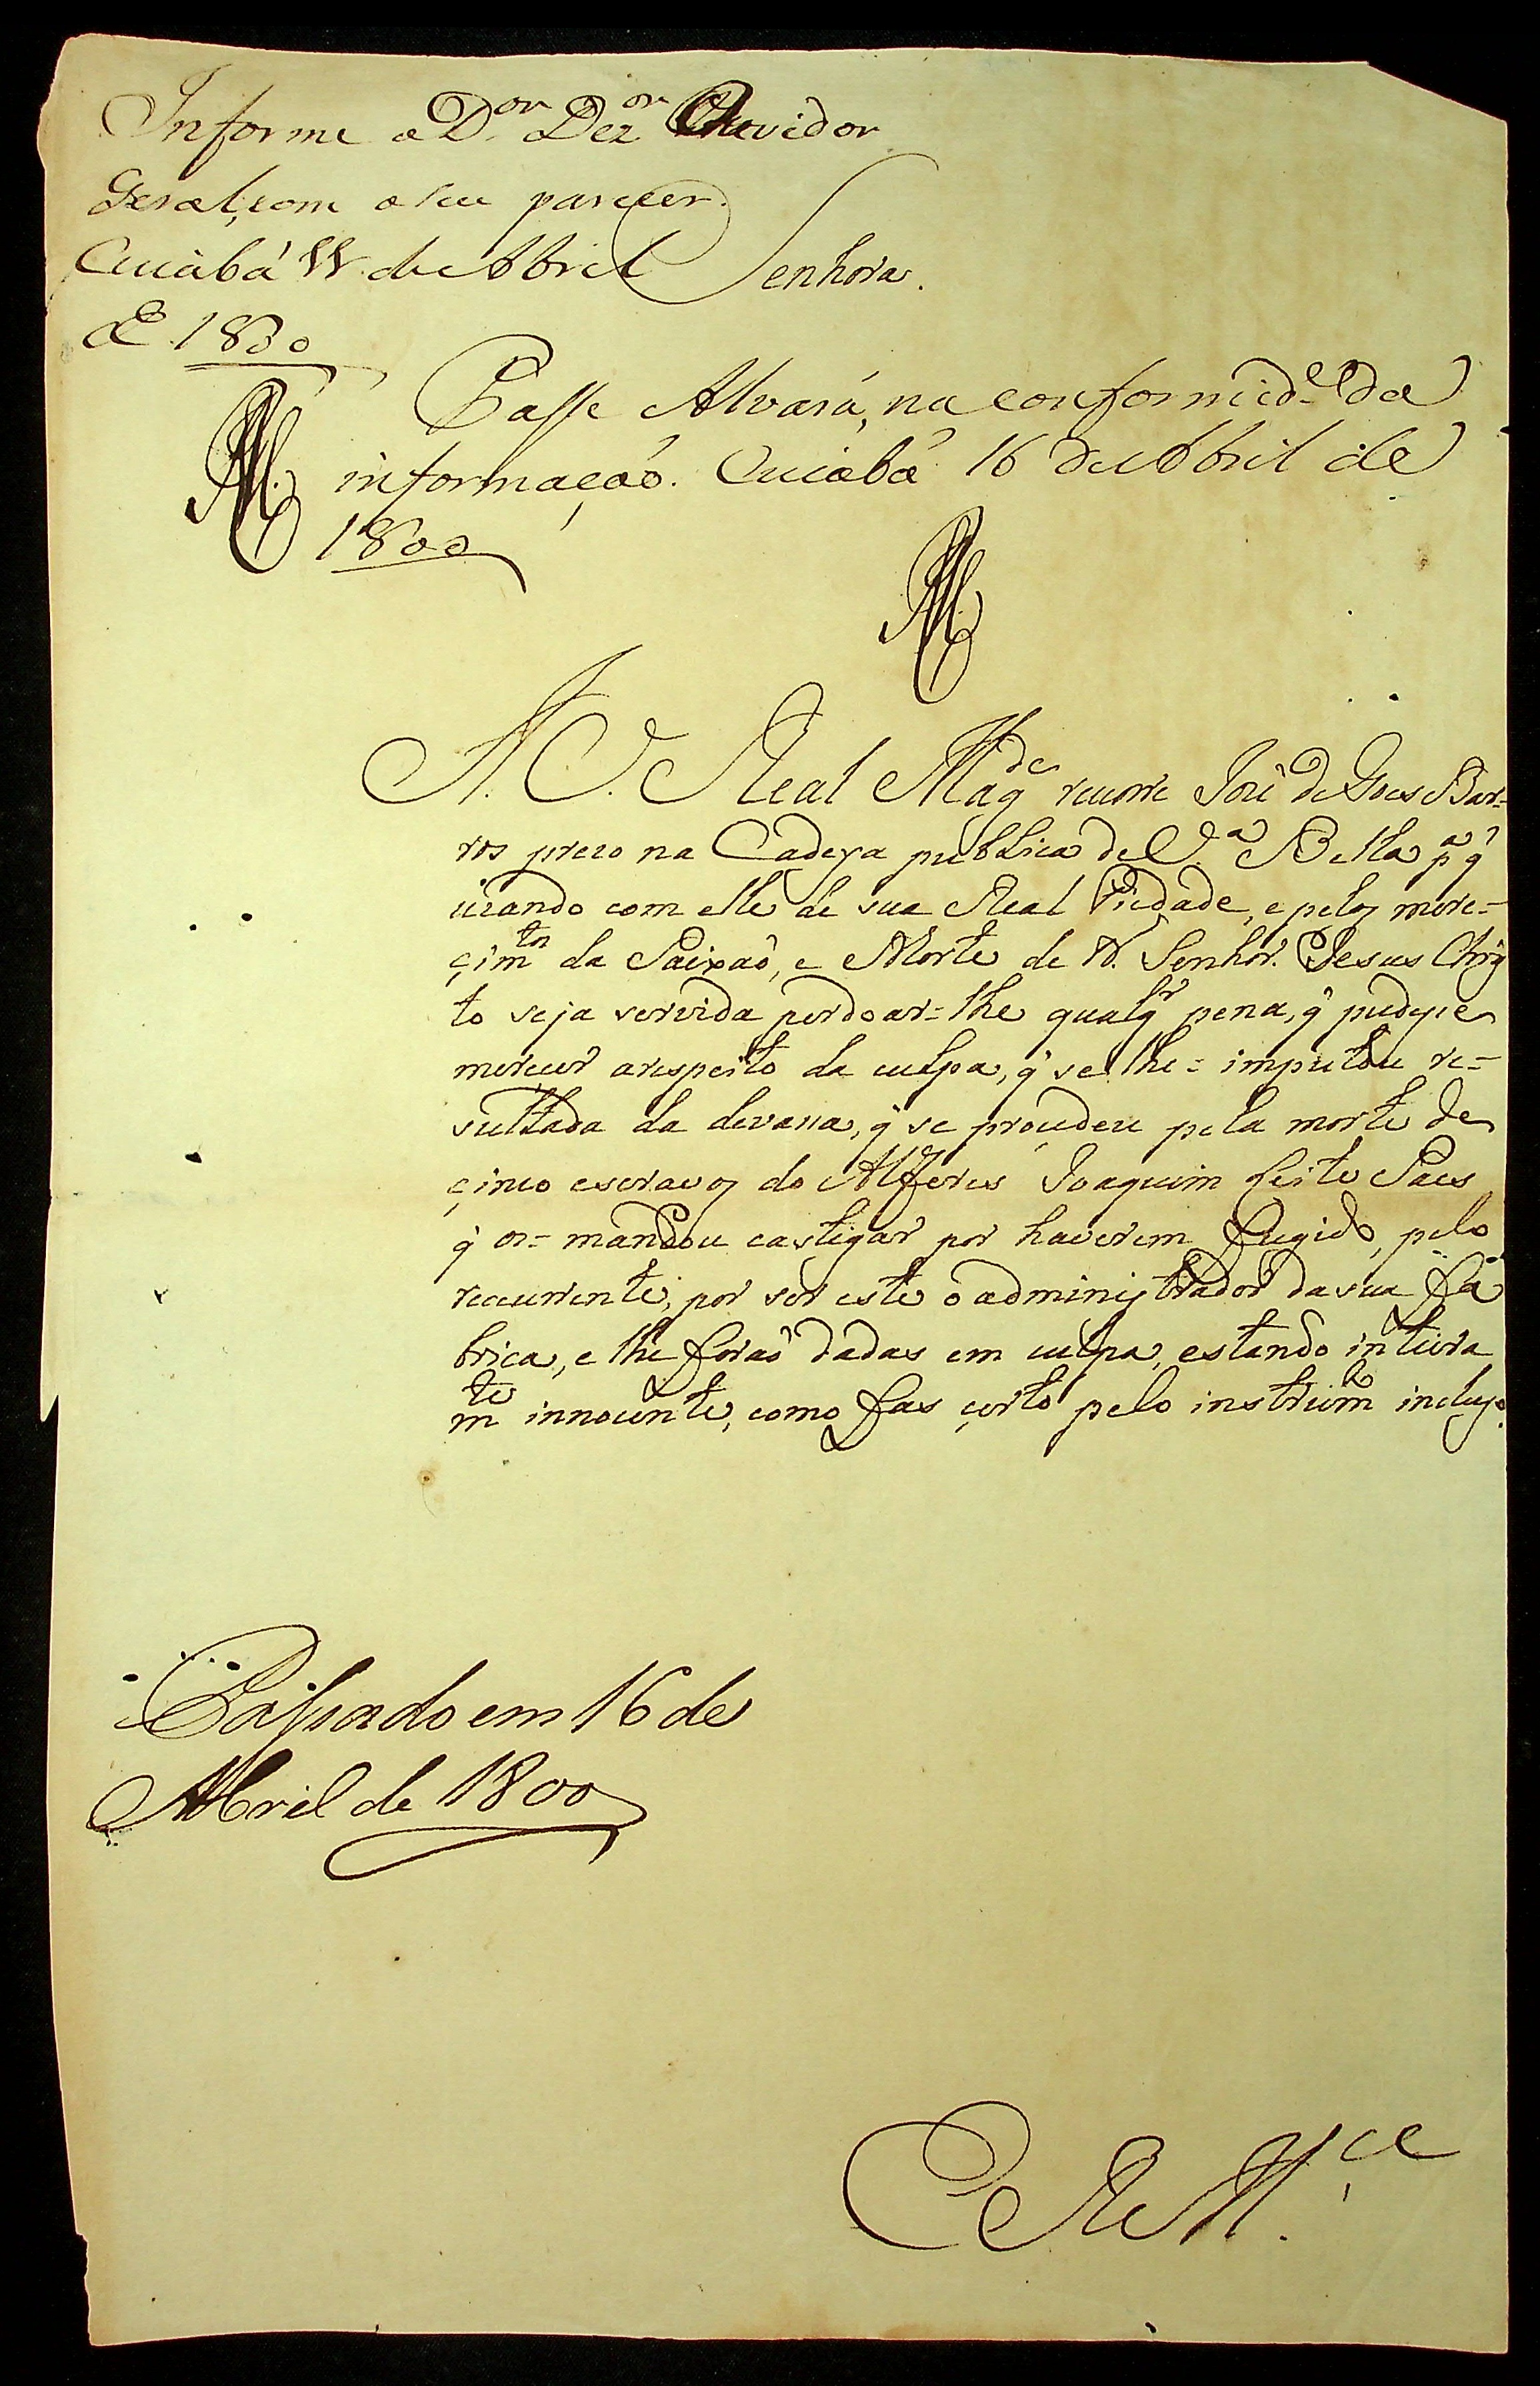 Informe o D.or Dez.or Ouvidor
Geral, com o seu parecer.
Cuiabá 11 de Abril
de 1800
Senhora.
Passe Alvará, na conformid.e da
informaçaõ. Cuiabá 16 de Abril de
1800
A. V. Real Mag.de recorre José de Goes Bar=
ros prezo na Cadeya publica de V.a Bella p.a q̃
uzando com elle de sua Real Piedade, e pelos mere=
çim.tos da Paixaõ, e Morte de N. Senhor Jesus Chris
to seja servida perdoar=lhe qualq.r pena, q̃ pudesse
merecer arespeito da culpa, q̃ se lhe=imputou re=
sultada da devassa, q̃ se proçedeu pela morte de
çinco escravos do Alferes Joaquim Leite Paes
q̃ os=mandou castigar por haverem fugido, pelo
recurrente, por ser este o administrador da sua Fa
brica, e lhe foraõ dadas em culpa, estando inteira
m.te innocente, como fas çerto pelo instrum.to incluso.
Passado em 16 de
Abril de 1800
E R M.ce